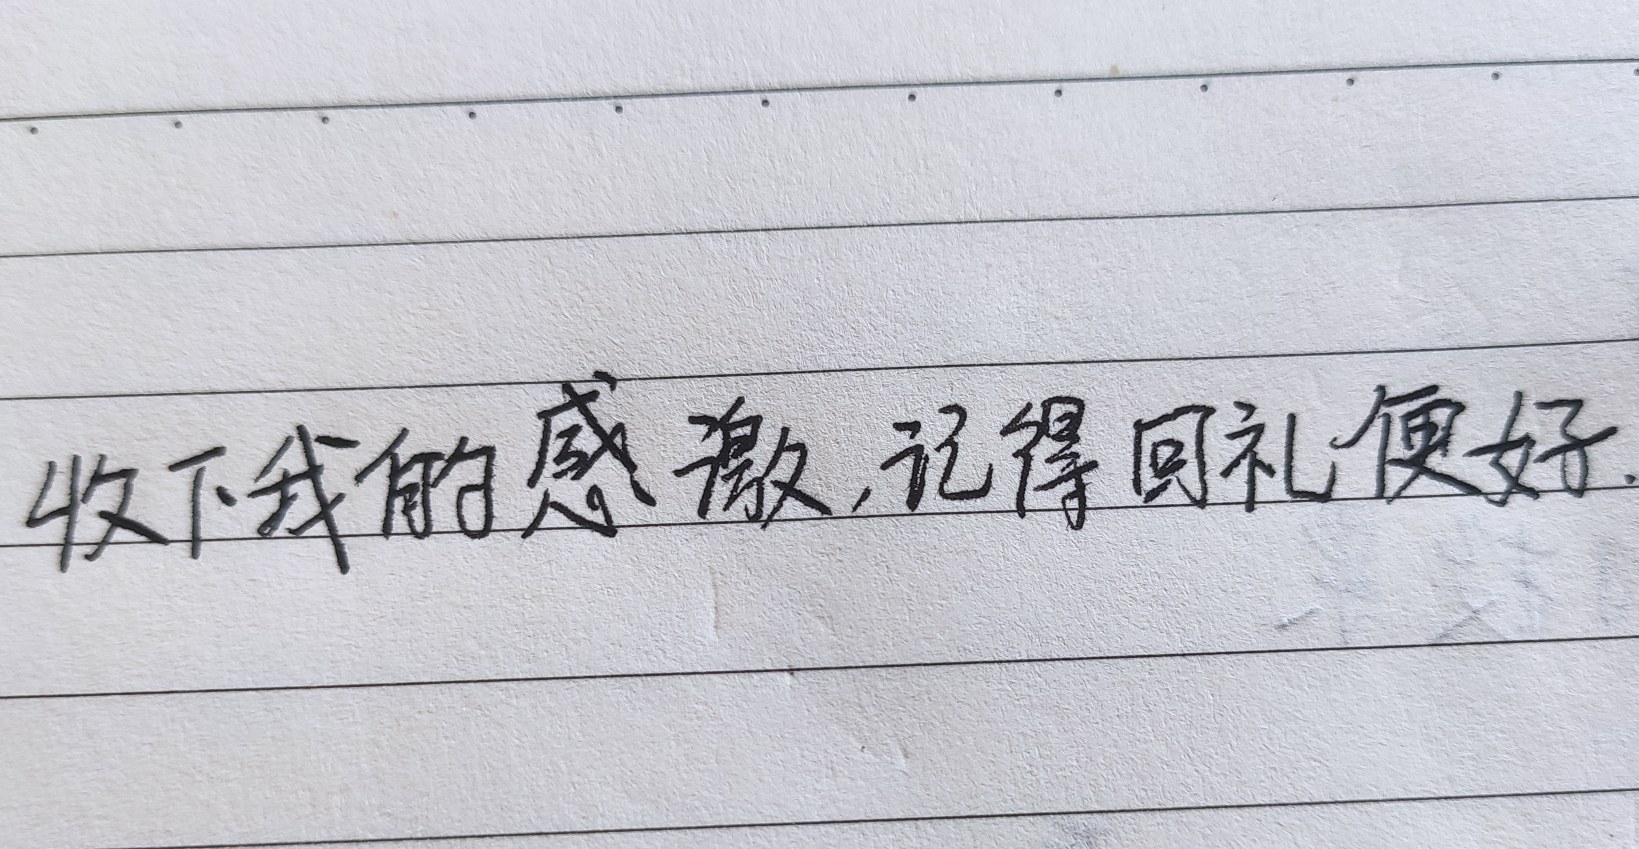 收下我的感激,记得回礼便好.